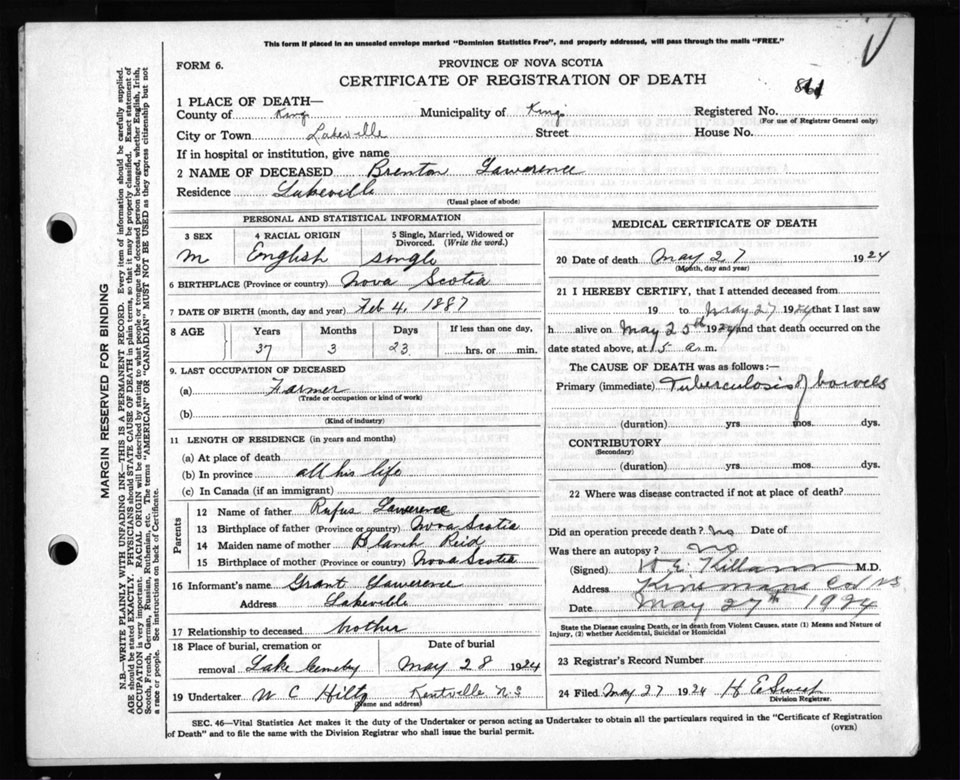 This form if placed in an unsealed envelope marked "Dominion Statistics Free", and properly addressed, will pass through the mails "FREE."
FORM 6.
PROVINCE OF NOVA SCOTIA
CERTIFICATE OF REGISTRATION OF DEATH
1 PLACE OF DEATH—
County of Kings Municipality of Kings Registered No.
(For use of Registrar General only)
City or Town Lakeville Street House No.
If in hospital or institution, give name
2 NAME OF DECEASED Brenton Lawerence
Residence Lakeville
(Usual place of abode)
PERSONAL AND STATISTICAL INFORMATION
3 SEX 4 RACIAL ORIGIN 5 Single, Married, Widowed or Divorced. (Write the word.)
M English single
6 BIRTHPLACE (Province or country) Nova Scotia
7 DATE OF BIRTH (month, day and year) Feb 4, 1887
8 AGE Years Months Days If less than one day,
37 3 23 hrs. or min.
9. LAST OCCUPATION OF DECEASED
(a) Farmer
(Trade or occupation or kind of work)
(b)
(Kind of industry)
11 LENGTH OF RESIDENCE (in years and months)
(a) At place of death
(b) In province all his life
(c) In Canada (if an immigrant)
Parents
12 Name of father Rufus Lawerence
13 Birthplace of father (Province or country) Nova Scotia
14 Maiden name of mother Blanch Reid
15 Birthplace of mother (Province or country) Nova Scotia
16 Informant's name Grant Lawerence
Address Lakeville
17 Relationship to deceased brother
18 Place of burial, cremation or removal Lake Cemetry Date of burial May 28 1924
19 Undertaker W C Hiltz Kentville N.S
(Name and address)
MEDICAL CERTIFICATE OF DEATH
20 Date of death May 27 1924
(Month, day and year)
21 I HEREBY CERTIFY, that I attended deceased from
19 to May 27 1924 that I last saw
h alive on May 25th 1924 and that death occurred on
date stated above, at 5 a.m.
The CAUSE OF DEATH was as follows:—
Primary (immediate) Tuberculosis of bowels
(duration) yrs. mos. dys.
CONTRIBUTORY
(Secondary)
(duration) yrs. mos. dys.
22 Where was disease contracted if not at place of death?
Did an operation precede death? no Date of
Was there an autopsy? no
(Signed) W. E. Killam M.D.
Address
Date May 27th 1924
State the Disease causing Death, or in death from Violent Causes, state (1) Means and Nature of
Injury, (2) whether Accidental, Suicidal or Homicidal
23 Registrar's Record Number
24 Filed May 27 1924 H E
Division Registrar.
SEC. 46—Vital Statistics Act makes it the duty of the Undertaker or person acting as Undertaker to obtain all the particulars required in the "Certificate of Registration
of Death" and to file the same with the Division Registrar who shall issue the burial permit.
(OVER)
MARGIN RESERVED FOR BINDING
N.B.—WRITE PLAINLY WITH UNFADING INK—THIS IS A PERMANENT RECORD. Every item of information should be carefully supplied.
AGE should be stated EXACTLY. PHYSICIANS should STATE CAUSE OF DEATH in plain terms, so that it may be properly classified. Exact statement of
OCCUPATION is very important. RACIAL ORIGIN will be described by stating to what people or tongue the deceased person belonged, whether English, Irish,
Scotch, French, German, Russian, Ruthenian, etc. The terms "AMERICAN" OR "CANADIAN" MUST NOT BE USED as they express citizenship but not
a race or people. See instructions on back of Certificate.